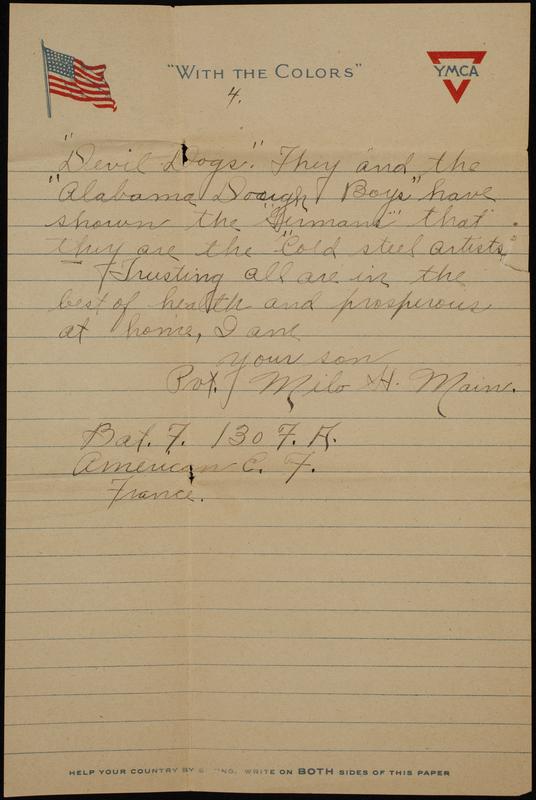 "WITH THE COLORS"
YMCA
4.
"Devil Dogs". They and the
"Alabama Dough Boys" have
shown the "Girmans" that
they are the "Cold steel artists"
Trusting all are in the
best of health and prosperous
at home, I am
your son
Pvt. Milo H. Main.
Bat. F. 130 F. A.
American E. F.
France.
HELP YOUR COUNTRY BY WRITE ON BOTH SIDES OF THIS PAPER